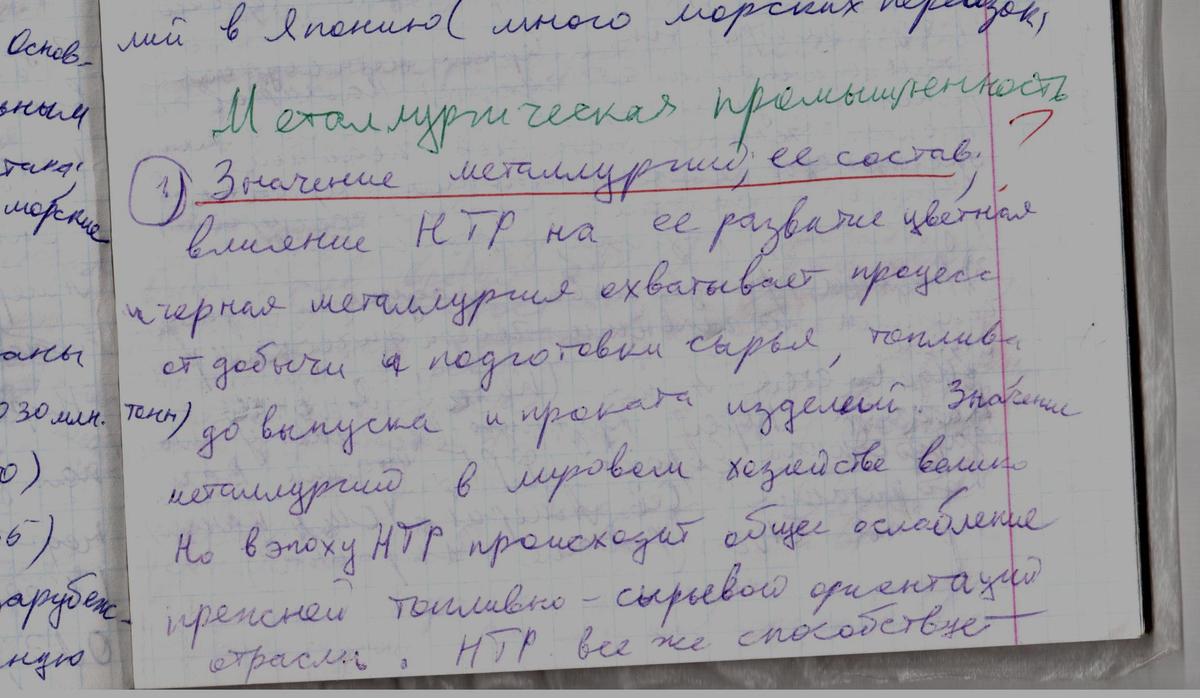 Основ-
ьным
така:
морские
аны
о 30 млн. тонн)
о)
5)
арубеж-
ную
лий в Японию ( много морских перевозок,
Металлургическая промышленность
1) Значение металлургий, ее состав,
влияние НТР на ее развитие цветная
и черная металлургия охватывает процесс
от добычи и подготовки сырья, топлива
до выпуска и проката изделий. Значение
металлургий в мировом хозяйстве велико
Но в эпоху НТР происходит общее ослабление
прежней топливно-сырьевой ориентаций
отрасли. НТР все же способствует